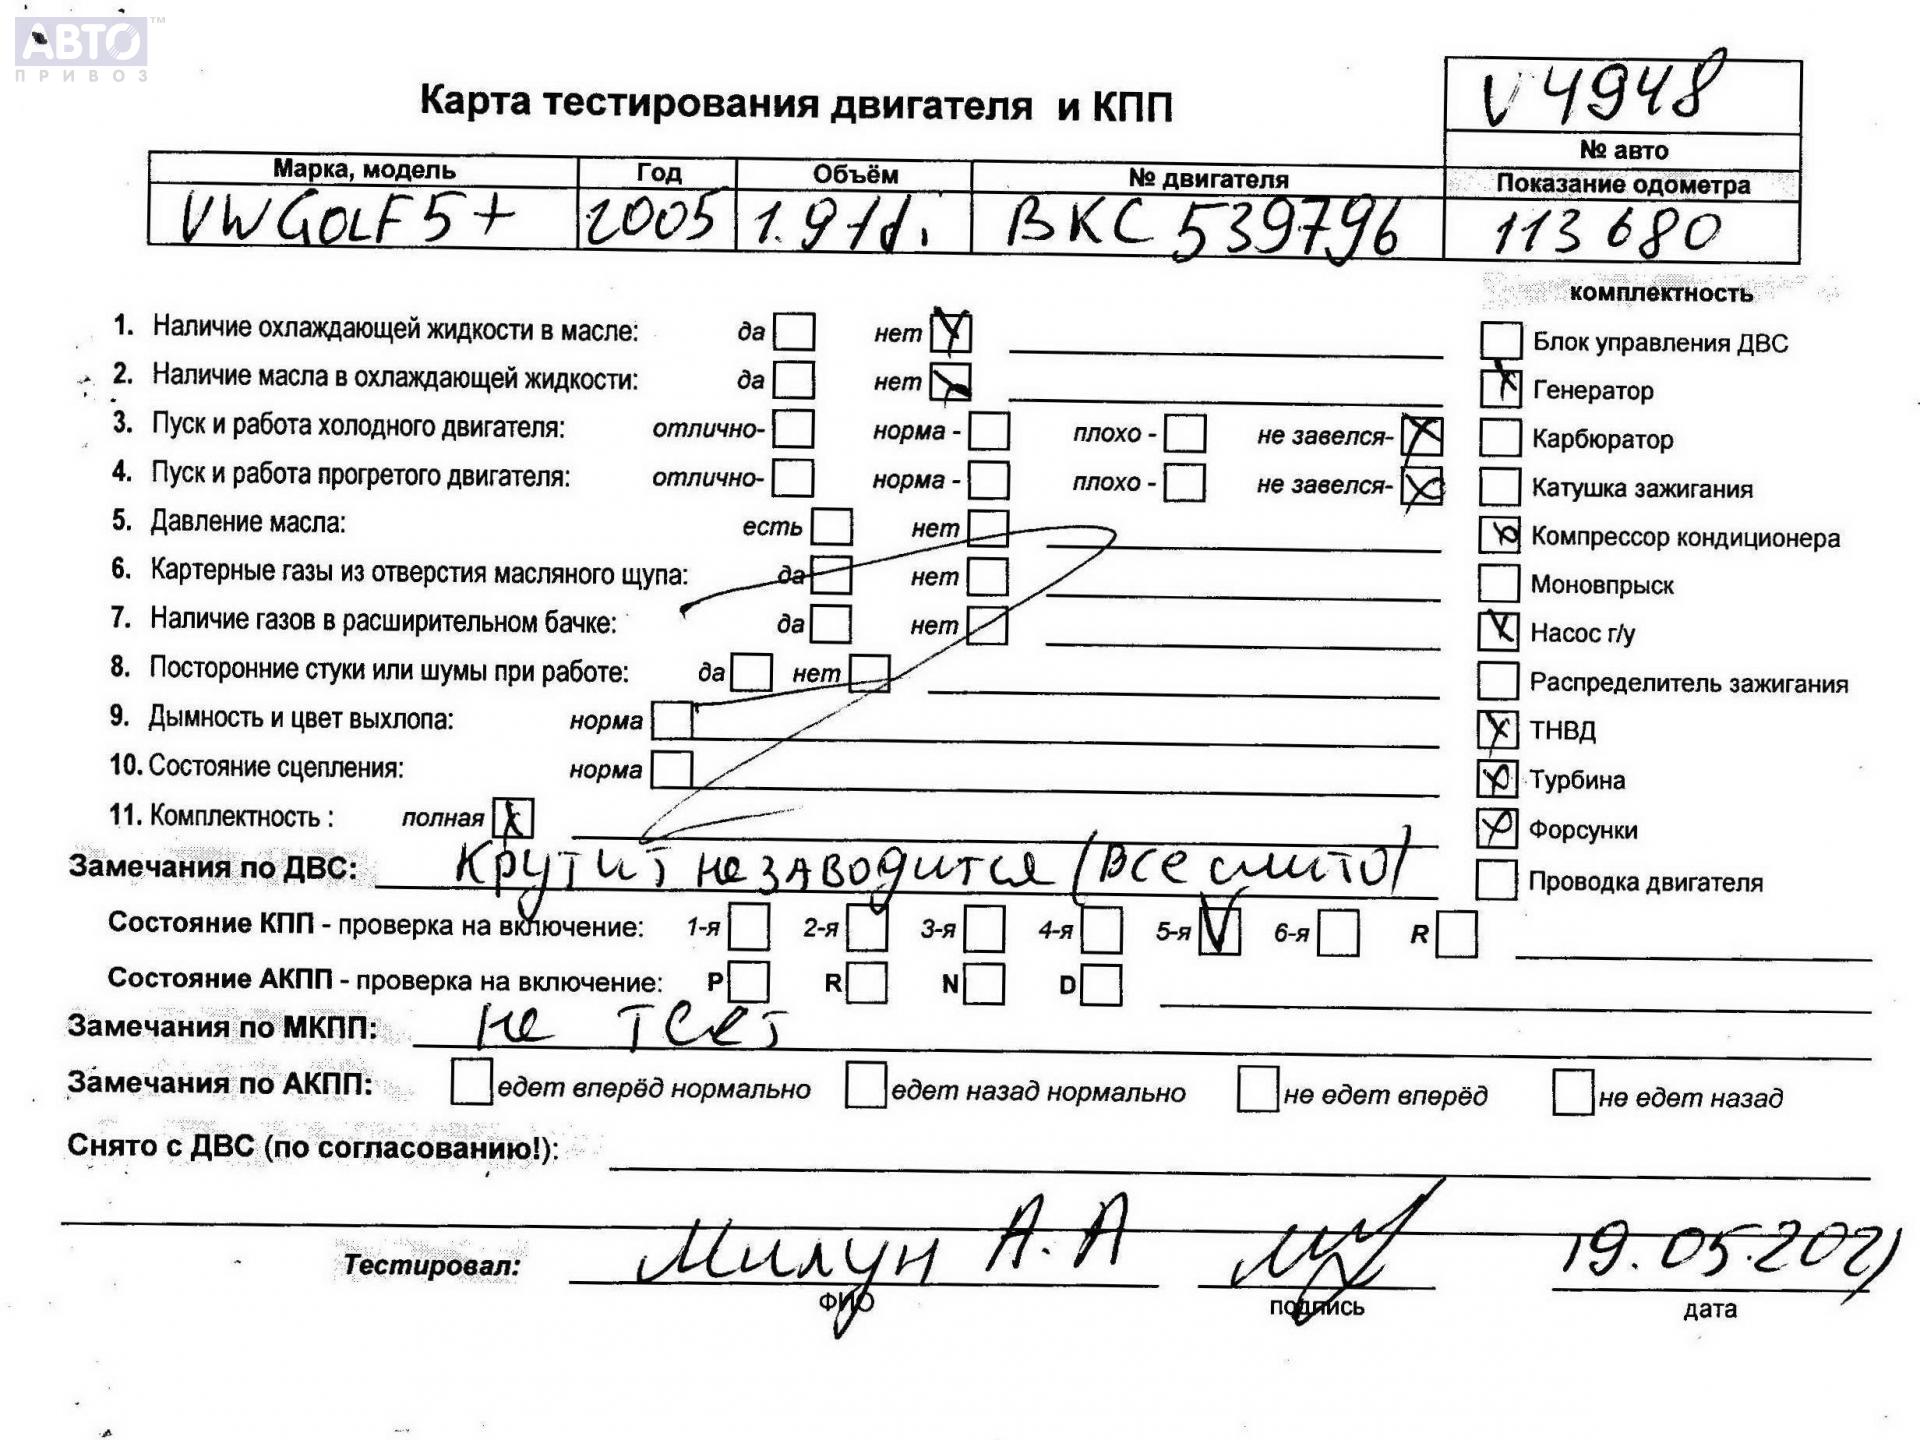 АВТО™
ПРИВОЗ
V4948
Карта тестирования двигателя и КПП
№ авто
Марка, модель Год Объём № двигателя Показание одометра
VW GOLF 5+ 2005 1.9 tdi BKC 539796 113680
комплектность
1. Наличие охлаждающей жидкости в масле: да нет
Блок управления ДВС
2. Наличие масла в охлаждающей жидкости: да нет
Генератор
3. Пуск и работа холодного двигателя: отлично- норма - плохо - не завелся-
Карбюратор
4. Пуск и работа прогретого двигателя: отлично- норма - плохо - не завелся-
Катушка зажигания
5. Давление масла: есть нет
Компрессор кондиционера
6. Картерные газы из отверстия масляного щупа: да нет
Моновпрыск
7. Наличие газов в расширительном бачке: да нет
Насос г/у
8. Посторонние стуки или шумы при работе: да нет
Распределитель зажигания
9. Дымность и цвет выхлопа: норма
ТНВД
10. Состояние сцепления: норма
Турбина
11. Комплектность : полная
Форсунки
Замечания по ДВС: Крутит не заводится (все слито)
Проводка двигателя
Состояние КПП - проверка на включение: 1-я 2-я 3-я 4-я 5-я 6-я R
Состояние АКПП - проверка на включение: P R N D
Замечания по МКПП: не тест
Замечания по АКПП: едет вперёд нормально едет назад нормально не едет вперёд не едет назад
Снято с ДВС (по согласованию!):
Тестировал: Милун А.А 19.05.2021
ФИО подпись дата